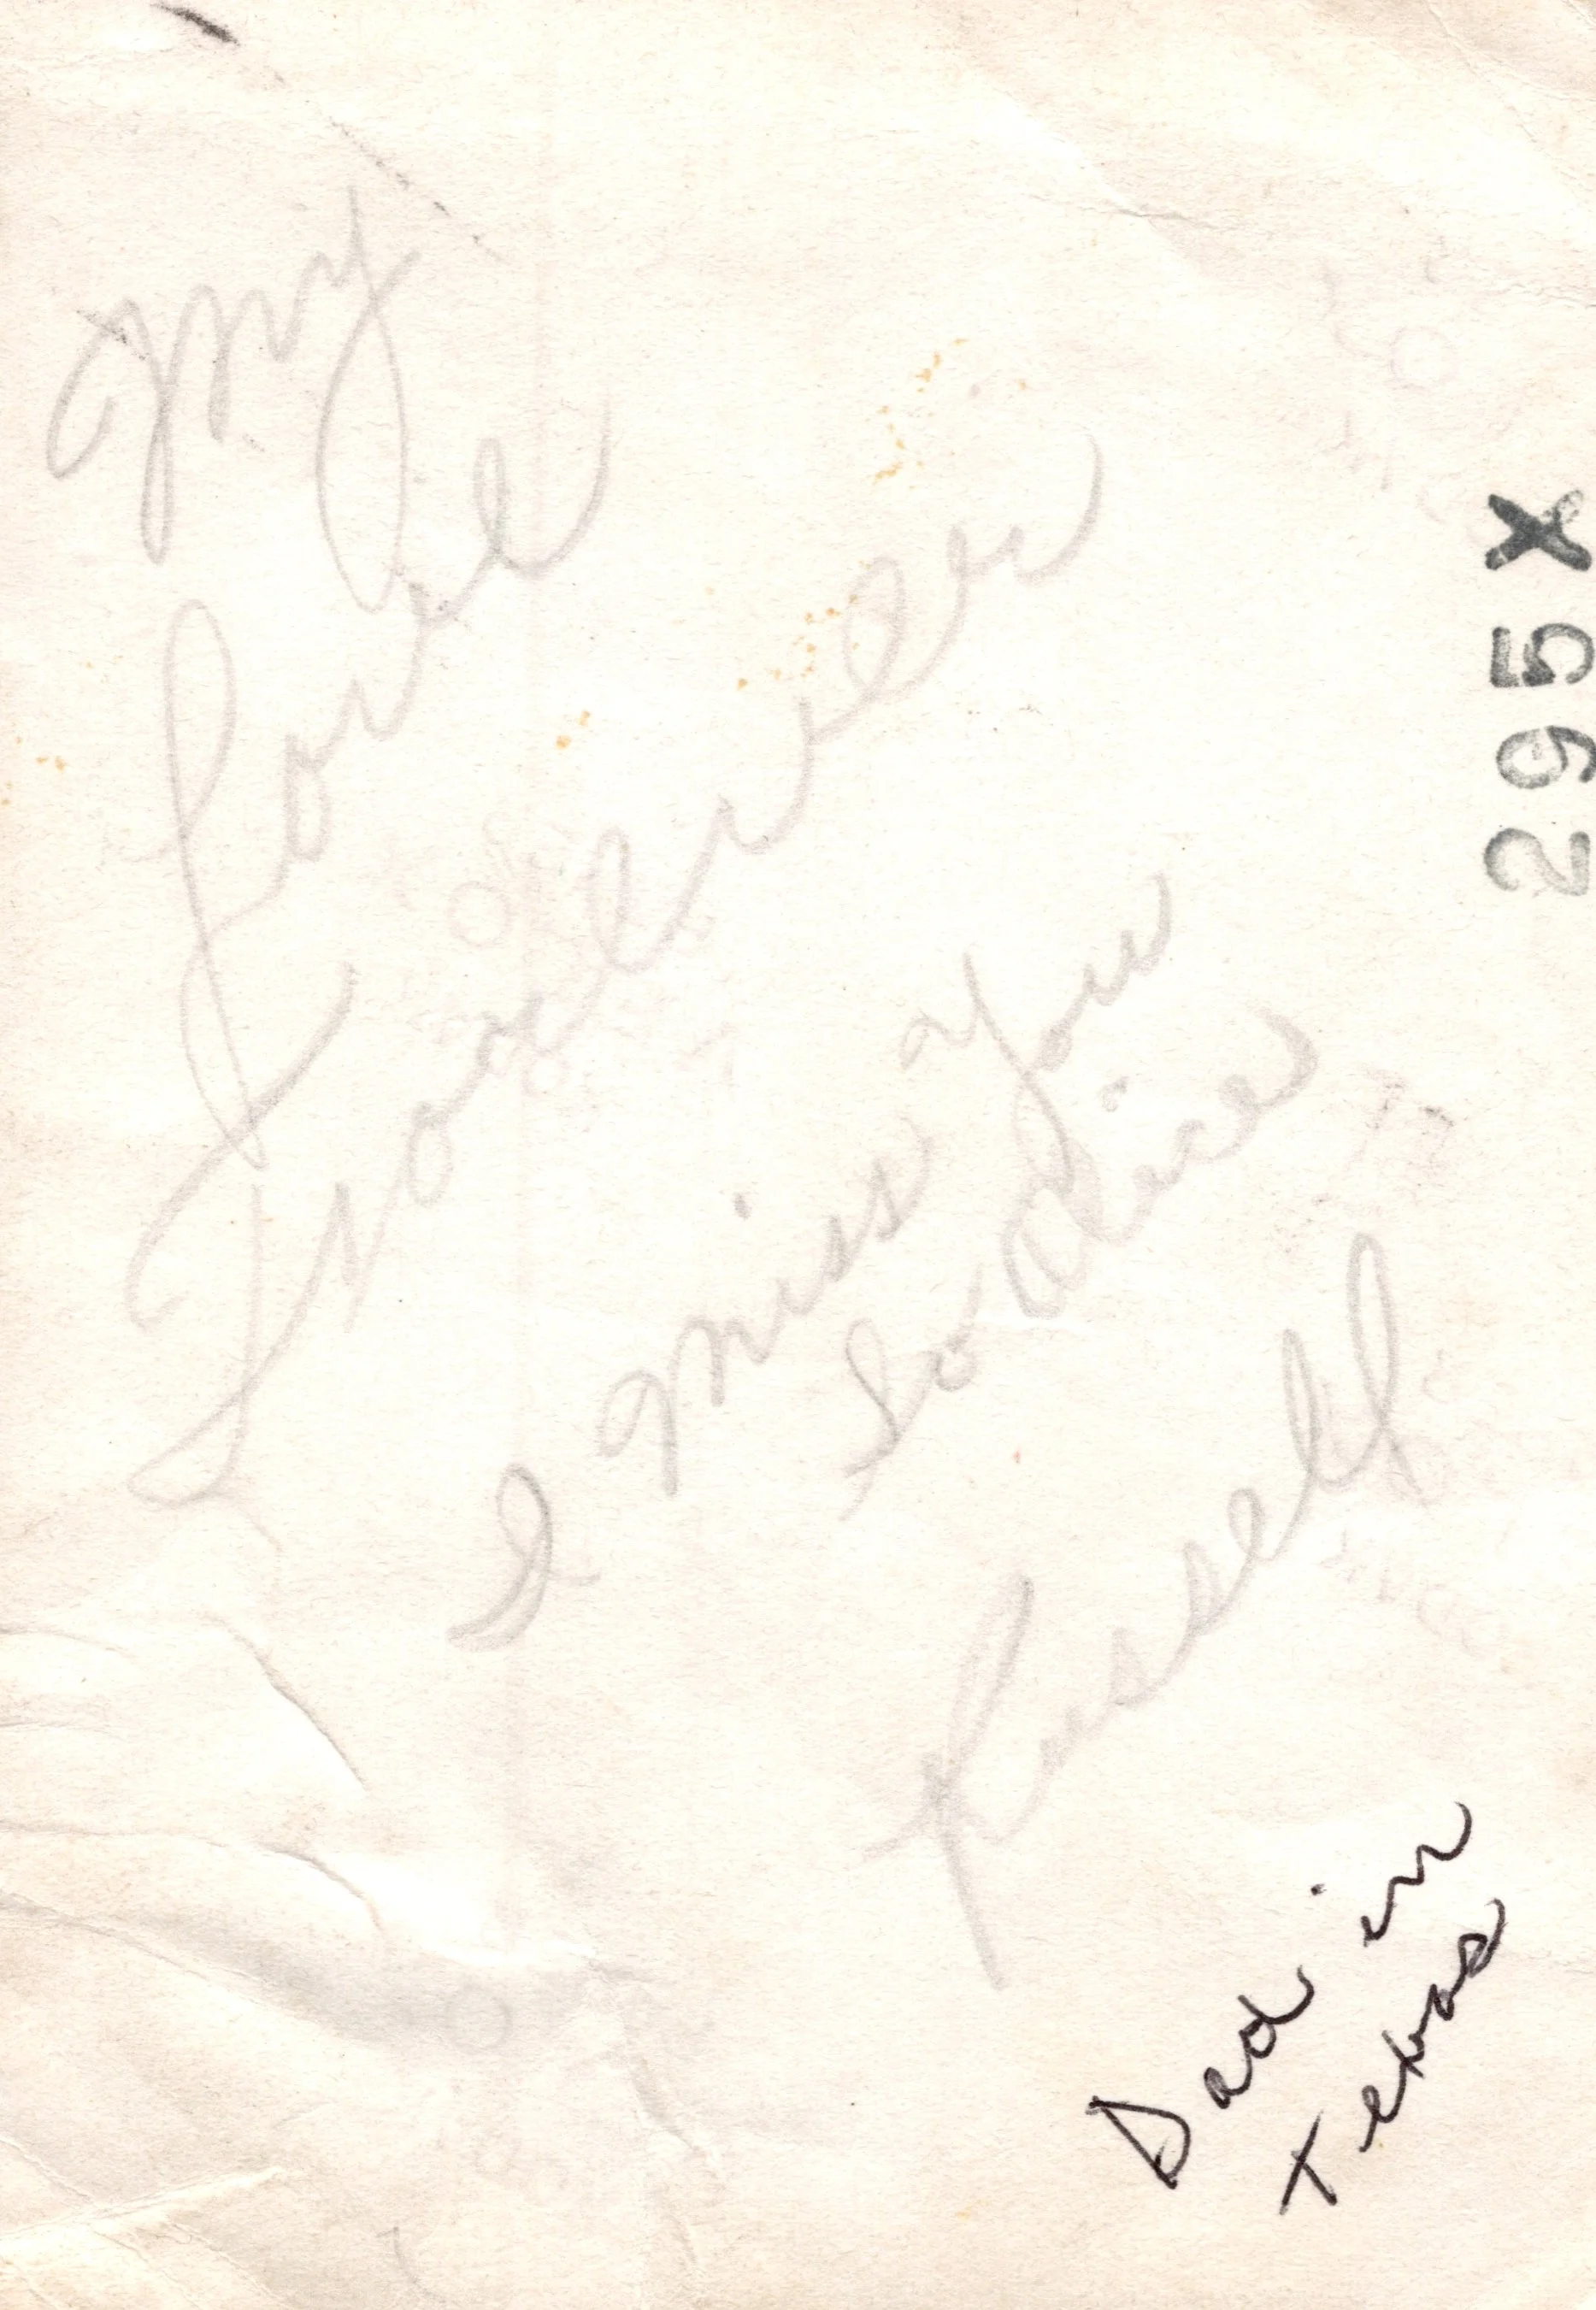 My
Love
Forever
I Miss You
So Alice
Russell
Dad in
Texas
295X